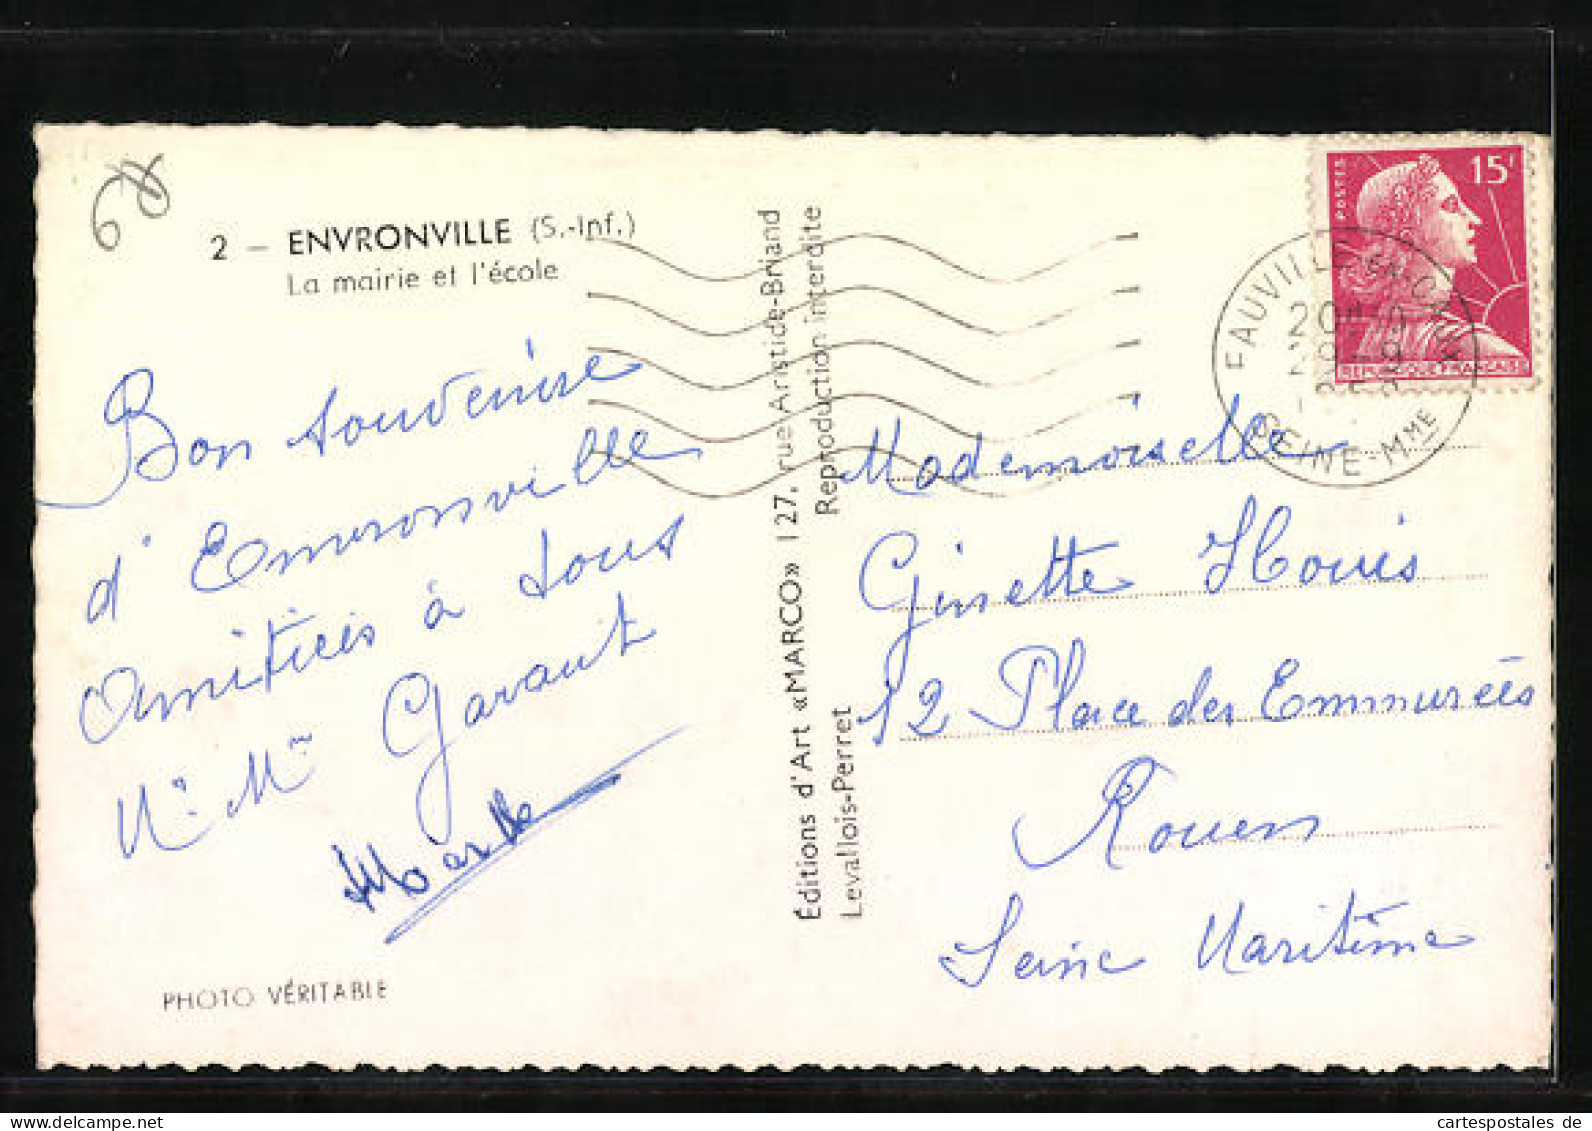 68
2 - ENVRONVILLE (S.-Inf.)
La mairie et l'école
Bon Souvenire
d'Envronville
Amitiéis à tous
Garaut
PHOTO VÉRITABLE
Éditions d'Art «MARCO» 127, rue Aristide-Briand
Levallois-Perret Reproduction interdite
POSTES 15F
RÉPUBLIQUE FRANÇAISE
FAUVILLE-EN-CAUX
SEINE-MME
Mademoiselle
Ginette Houis
12 Place des Emmuréés
Rouen
Seine Maritime
cartespostales de